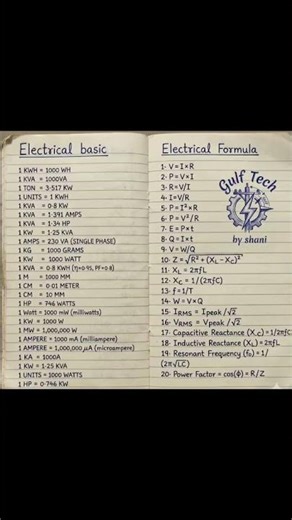 Electrical basic
1 KWH = 1000 WH
1 KVA = 1000VA
1 TON = 3.517 KW
1 UNITS = 1 KWH
1 KVA = 0.8 KW
1 KVA = 1.391 AMPS
1 KVA = 1.34 HP
1 KW = 1.25 KVA
1 AMPS = 230 VA (SINGLE PHASE)
1 KG = 1000 GRAMS
1 KW = 1000 WATT
1 KVA = 0.8 KWH (η=0.95, PF=0.8)
1 M = 1000 MM
1 CM = 0.01 METER
1 CM = 10 MM
1 HP = 746 WATTS
1 Watt = 1000 mW (milliwatts)
1 KW = 1000 W
1 MW = 1,000,000 W
1 AMPERE = 1000 mA (milliampere)
1 AMPERE = 1,000,000 μA (microampere)
1 KA = 1000A
1 KW = 1.25 KVA
1 UNITS = 1000 WATTS
1 HP = 0.746 KW
Electrical Formula
1- V = I×R
2- P = V×I
3- R = V/I
4- I = V/R
5- P = I²×R
6- P = V²/R
7- E = P×t
8- Q = I×t
9- V = W/Q
10- Z = √R² + (XL-XC)²
11- XL = 2πfL
12- XC = 1/(2πfC)
13- f = 1/T
14- W = V×Q
15- IRMS = Ipeak/√2
16- VRMS = Vpeak/√2
17- Capacitive Reactance (XC) = 1/2πfC
18- Inductive Reactance (XL) = 2πfL
19- Resonant Frequency (f₀) = 1/
(2π√LC)
20- Power Factor = cos(φ) = R/Z
Gulf Tech
by shani